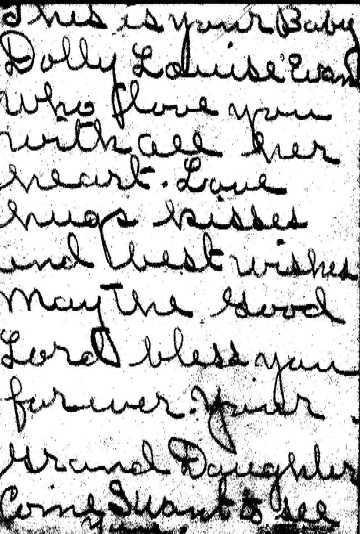 This is your Baby
Dolly Louise Evans
who love you
with all her
heart. Love
hugs kisses
and best wishes
May the Good
Lord bless you
forever. Your
Grand Daughter
Come I want to see
you.